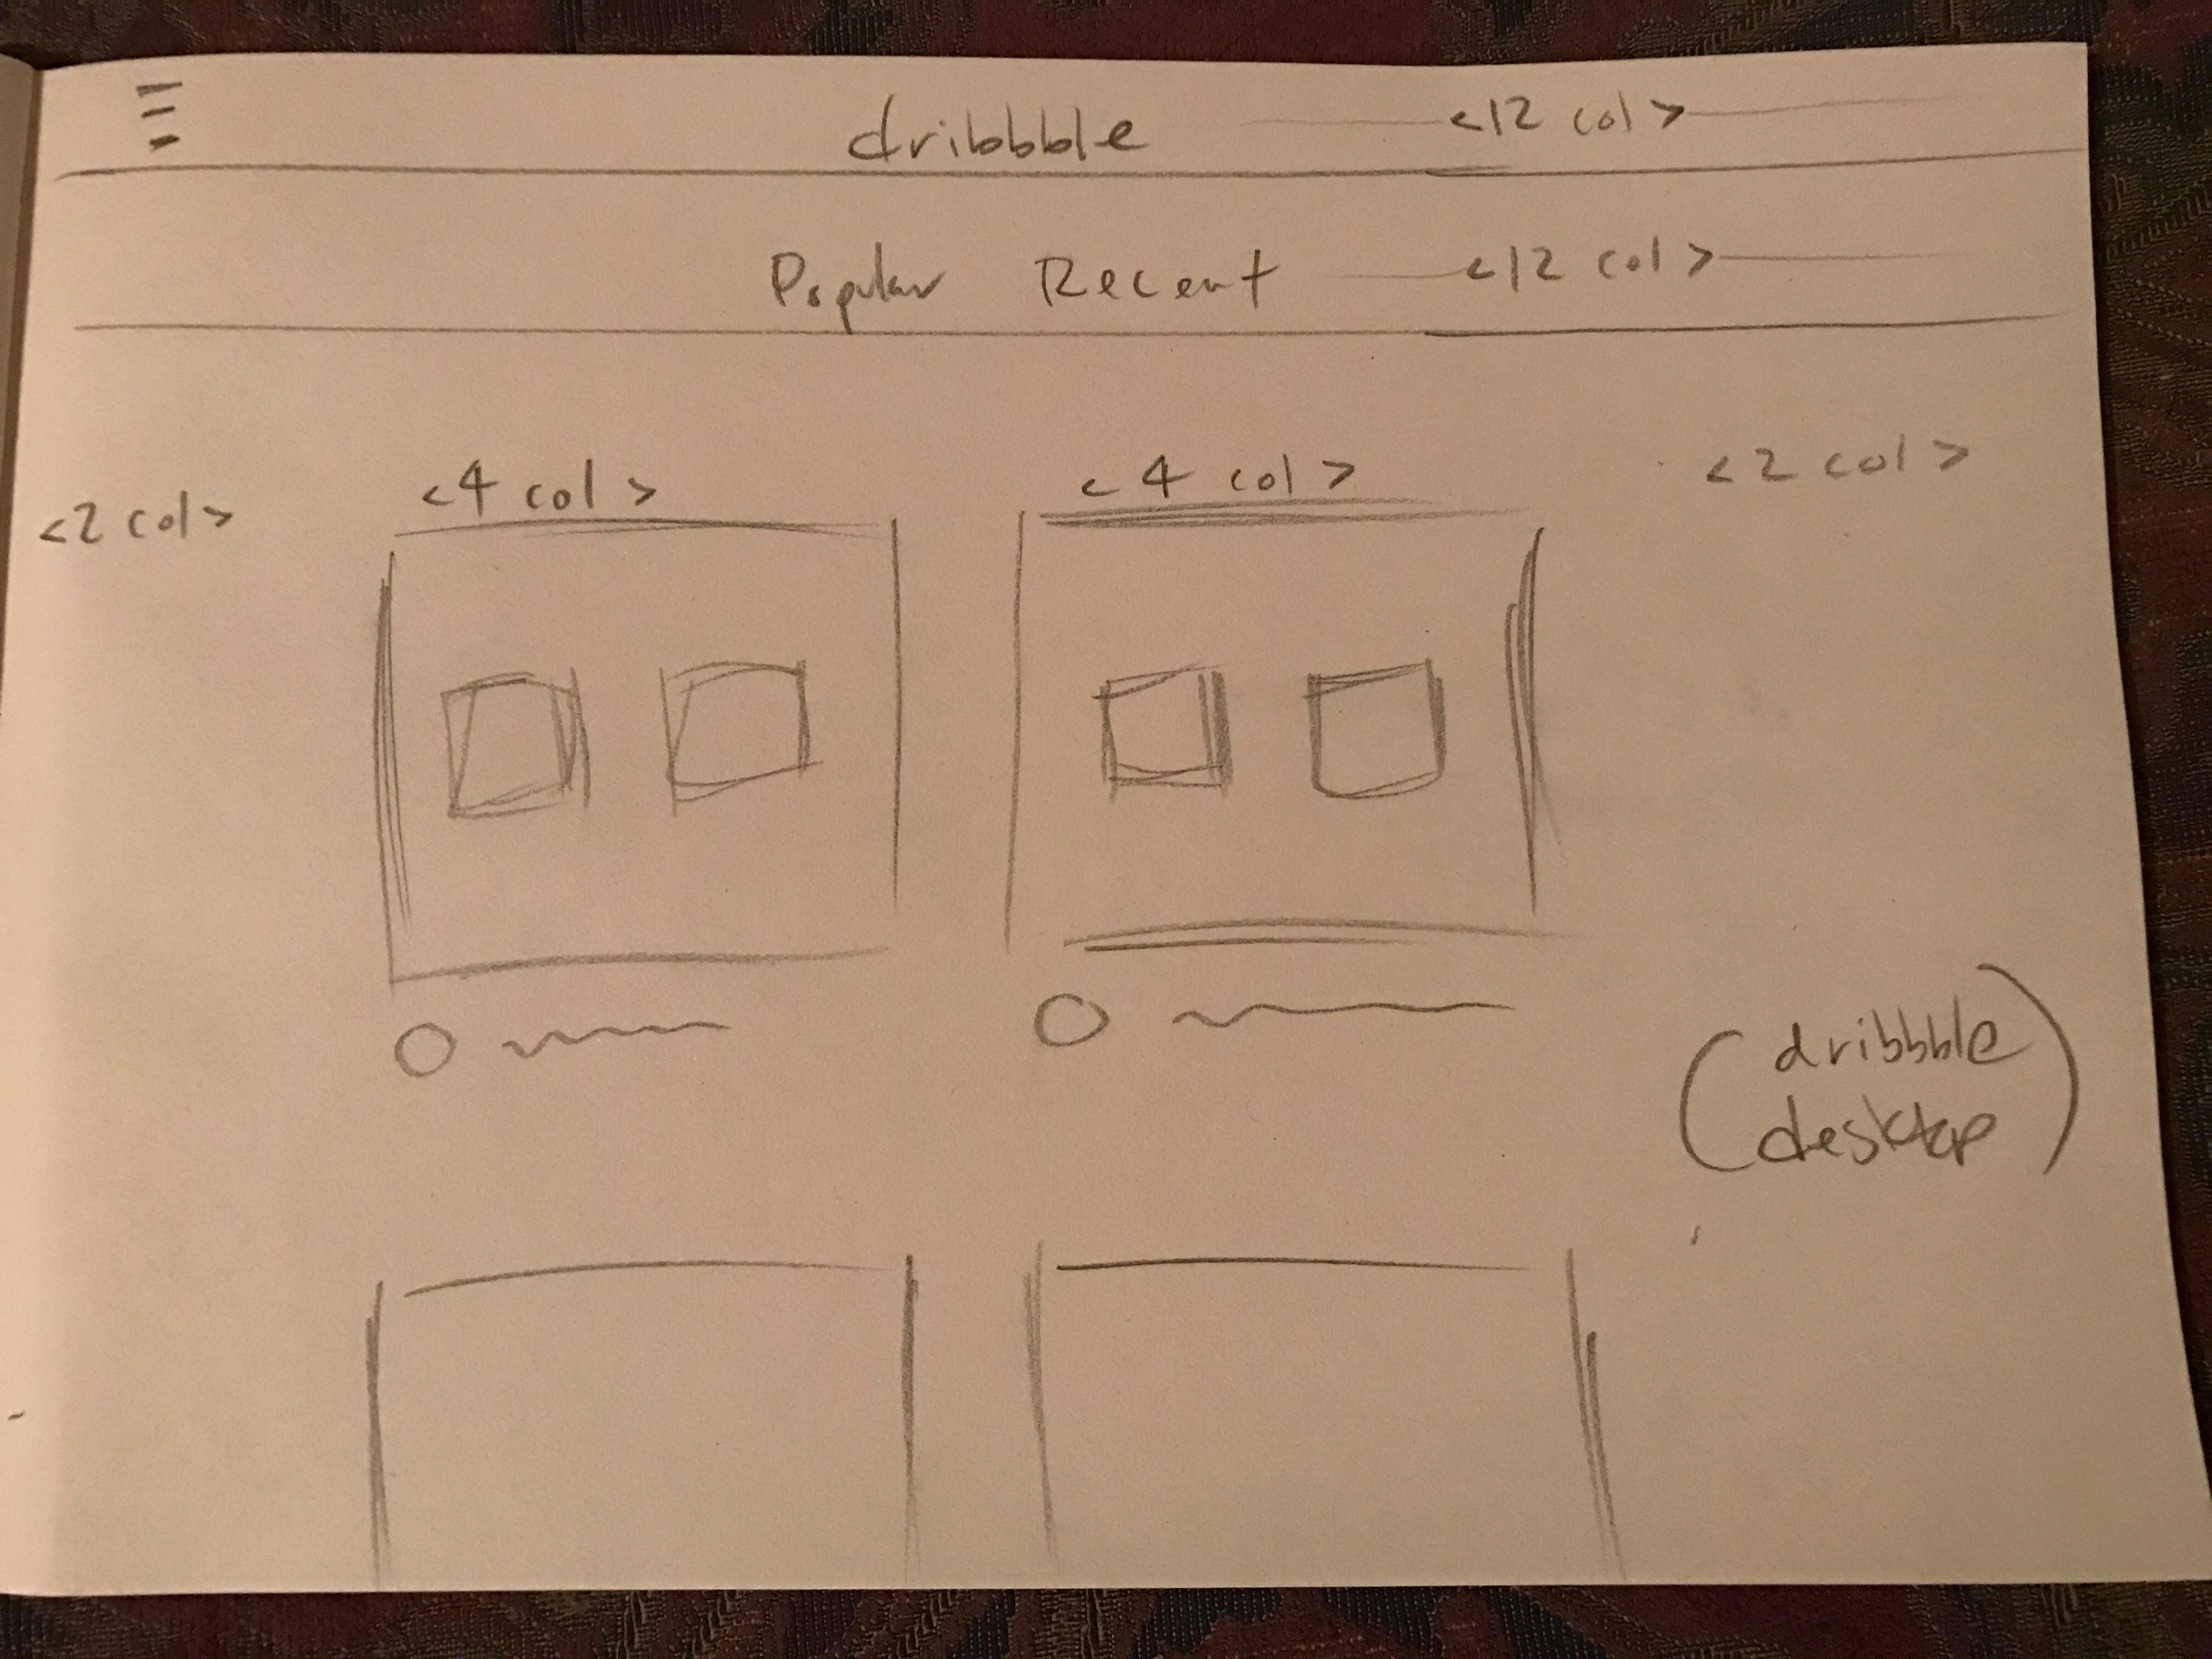 dribbble <12 col>
Popular Recent <12 col>
<2 col> <4 col> <4 col> <2 col>
(dribbble
desktop)